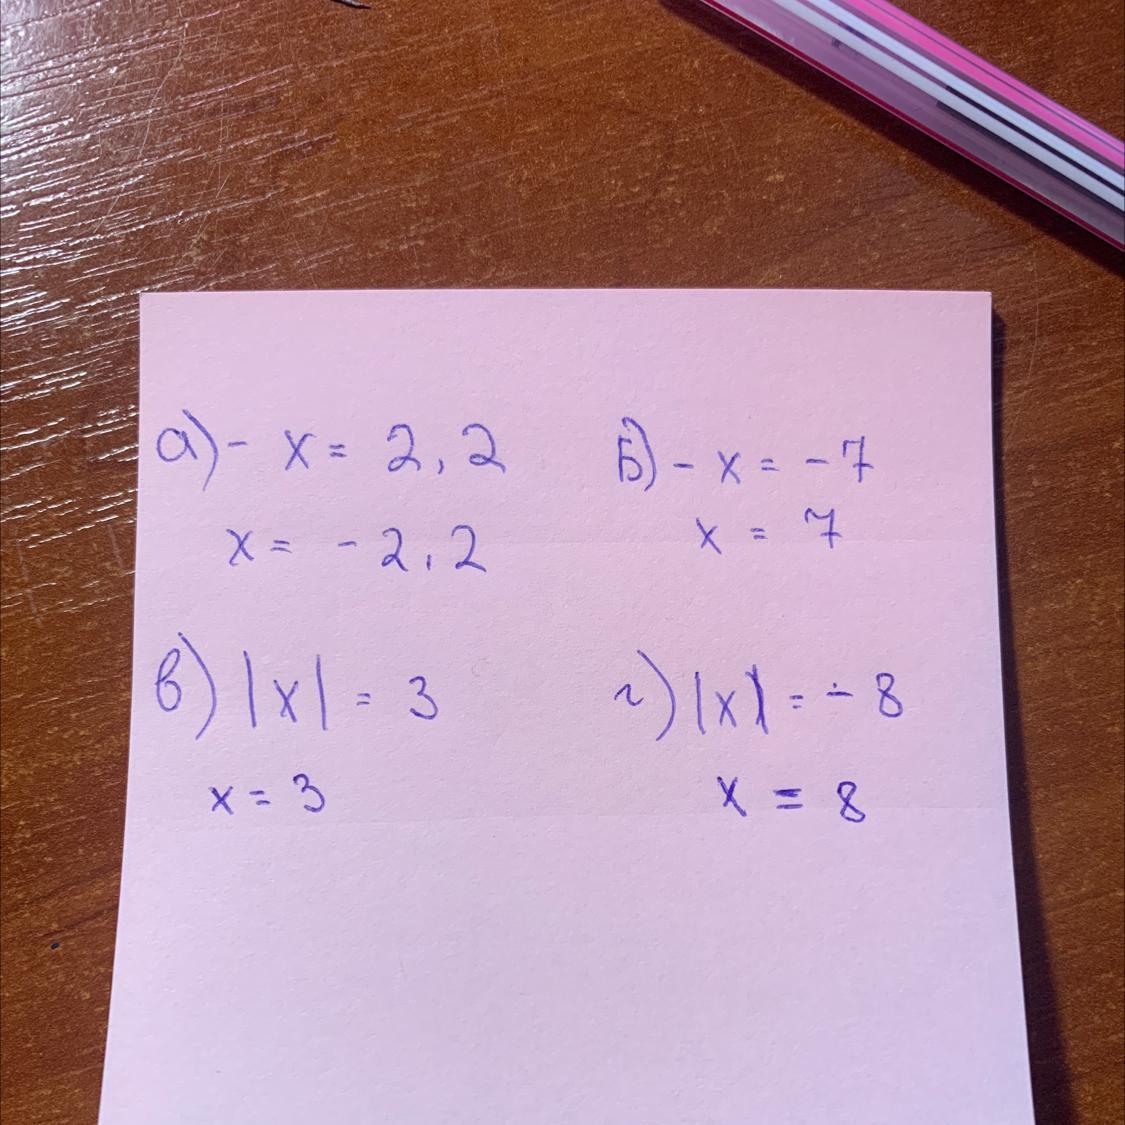 а) - x = 2,2
x = - 2,2
Б) - x = - 7
x = 7
в) |x| = 3
x = 3
г) |x| = - 8
x = 8